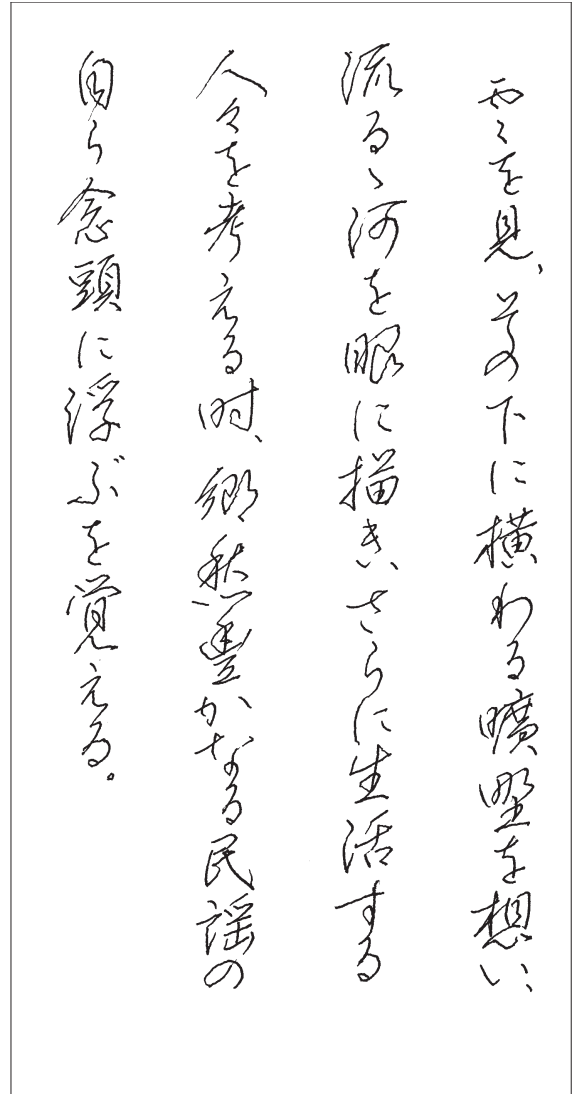 雲を見、その下に横わる曠野を想い、
流るゝ河を眼に描き、さらに生活する
人々を考える時、郷愁豊かなる民謡の
自ら念頭に浮ぶを覚える。